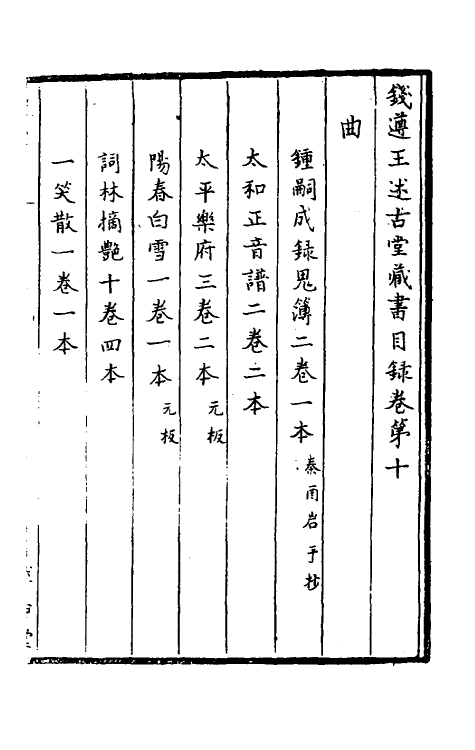 錢遵王述古堂藏書目録卷第十
曲
鍾嗣成録鬼簿二卷一本 秦酉岩手抄
太和正音譜二卷二本
太平樂府三卷二本 元板
陽春白雪一卷一本 元板
詞林摘艷十卷四本
一笑散一卷一本